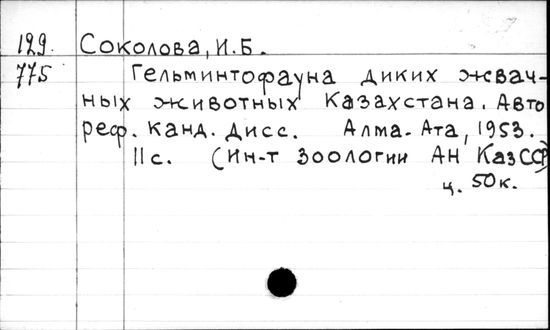 129. Соколова, И.Б.
775 Гельминтофауна диких жвач-
ных животных Казахстана. Авто
реф. канд. дисс. Алма-Ата, 1953.
11с. (Ин-т зоологии АН КазССР)
ц. 50к.